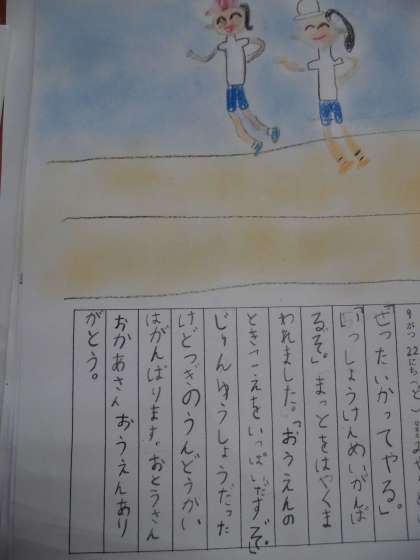 9がつ22にち
「ぜったいかってやる。」
「いっしょうけんめいがんば
るぞ。」まっとをはやくま
われました。「おうえんの
とき、こえをいっぱいだすぞ。」
じゅんゆうしょうだった
けどつぎのうんどうかい
はがんばります。おとうさん
おかあさんおうえんあり
がとう。